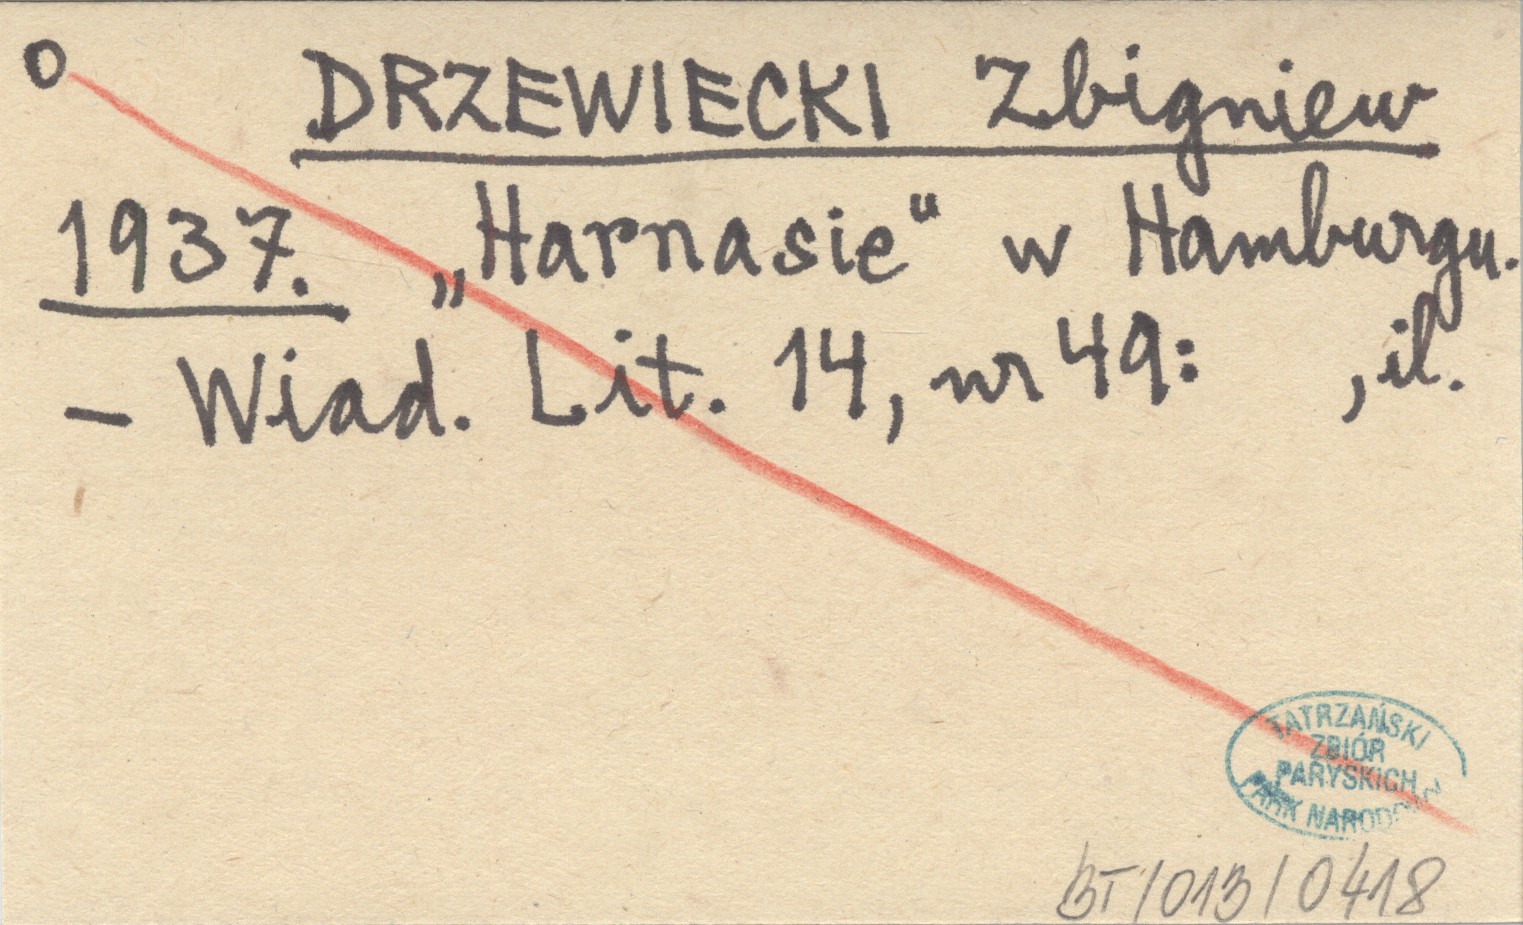 O DRZEWIECKI Zbigniew
1937. „Harnasie" w Hamburgu.
- Wiad. Lit. 14, nr 49: , il.
TATRZAŃSKI
ZBIÓR
PARYSKICH
PARK NARODOWY
BT/013/0418